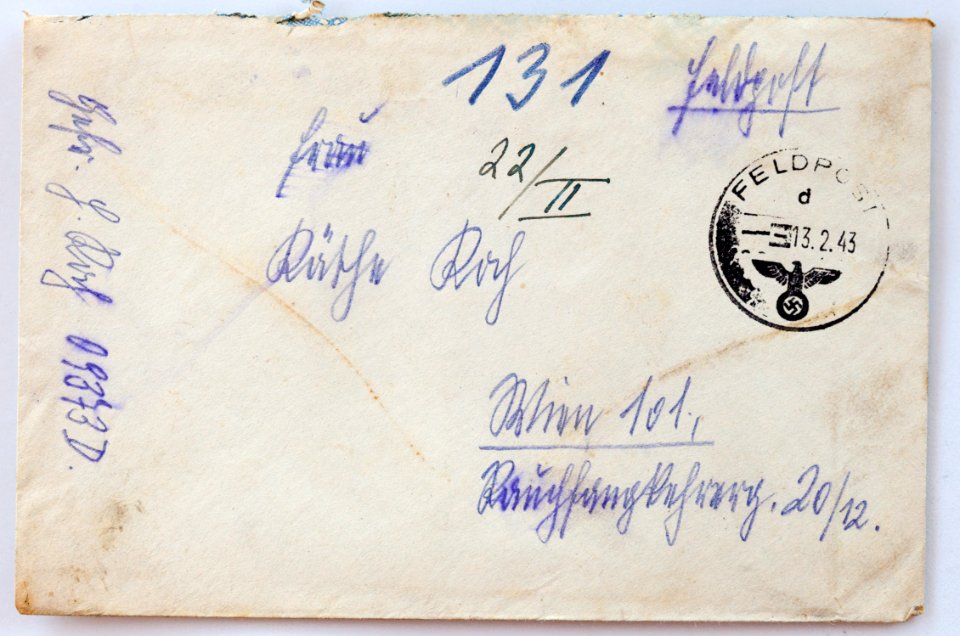 131
Feldpost
Frau
22/II
Käthe Koch
FELDPOST
d
13.2.43
Wien 101,
Rauchfangkehrerg. 20/12.
09373 D.